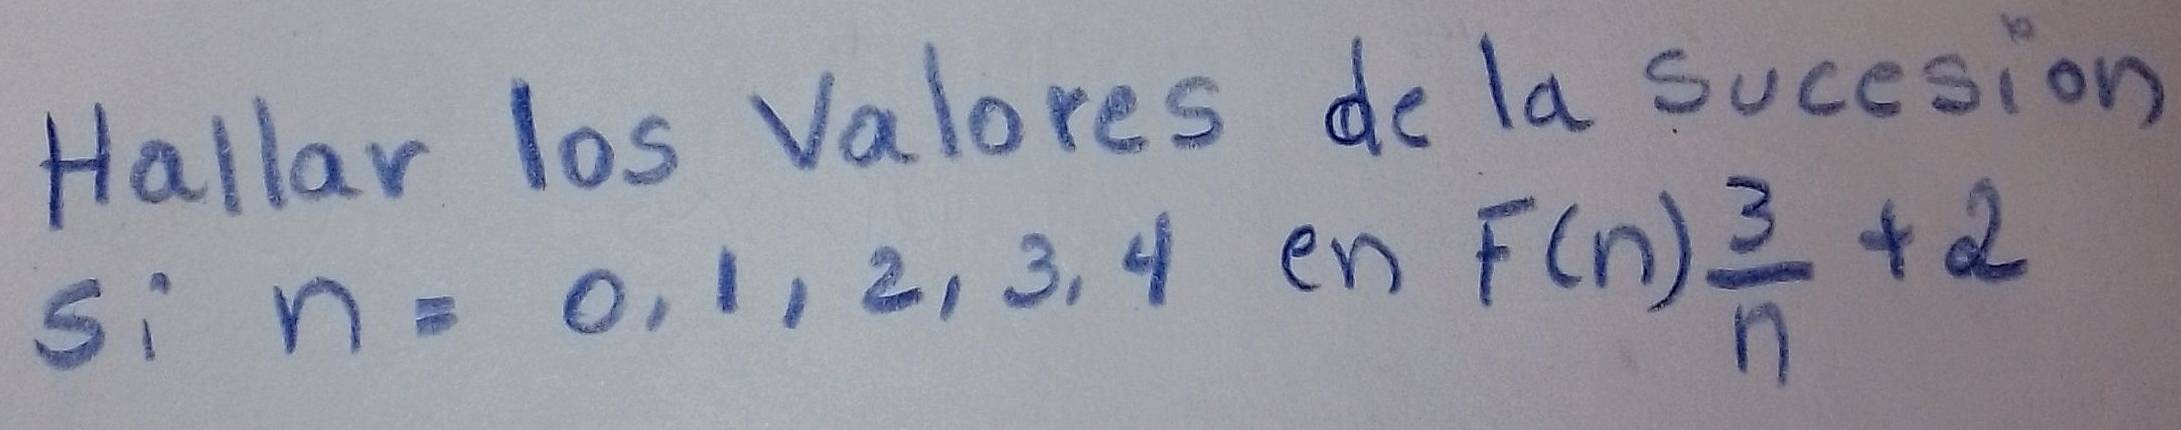 Hallar los Valores de la sucesion
Si n = 0, 1, 2, 3, 4 en F(n) 3/n + 2